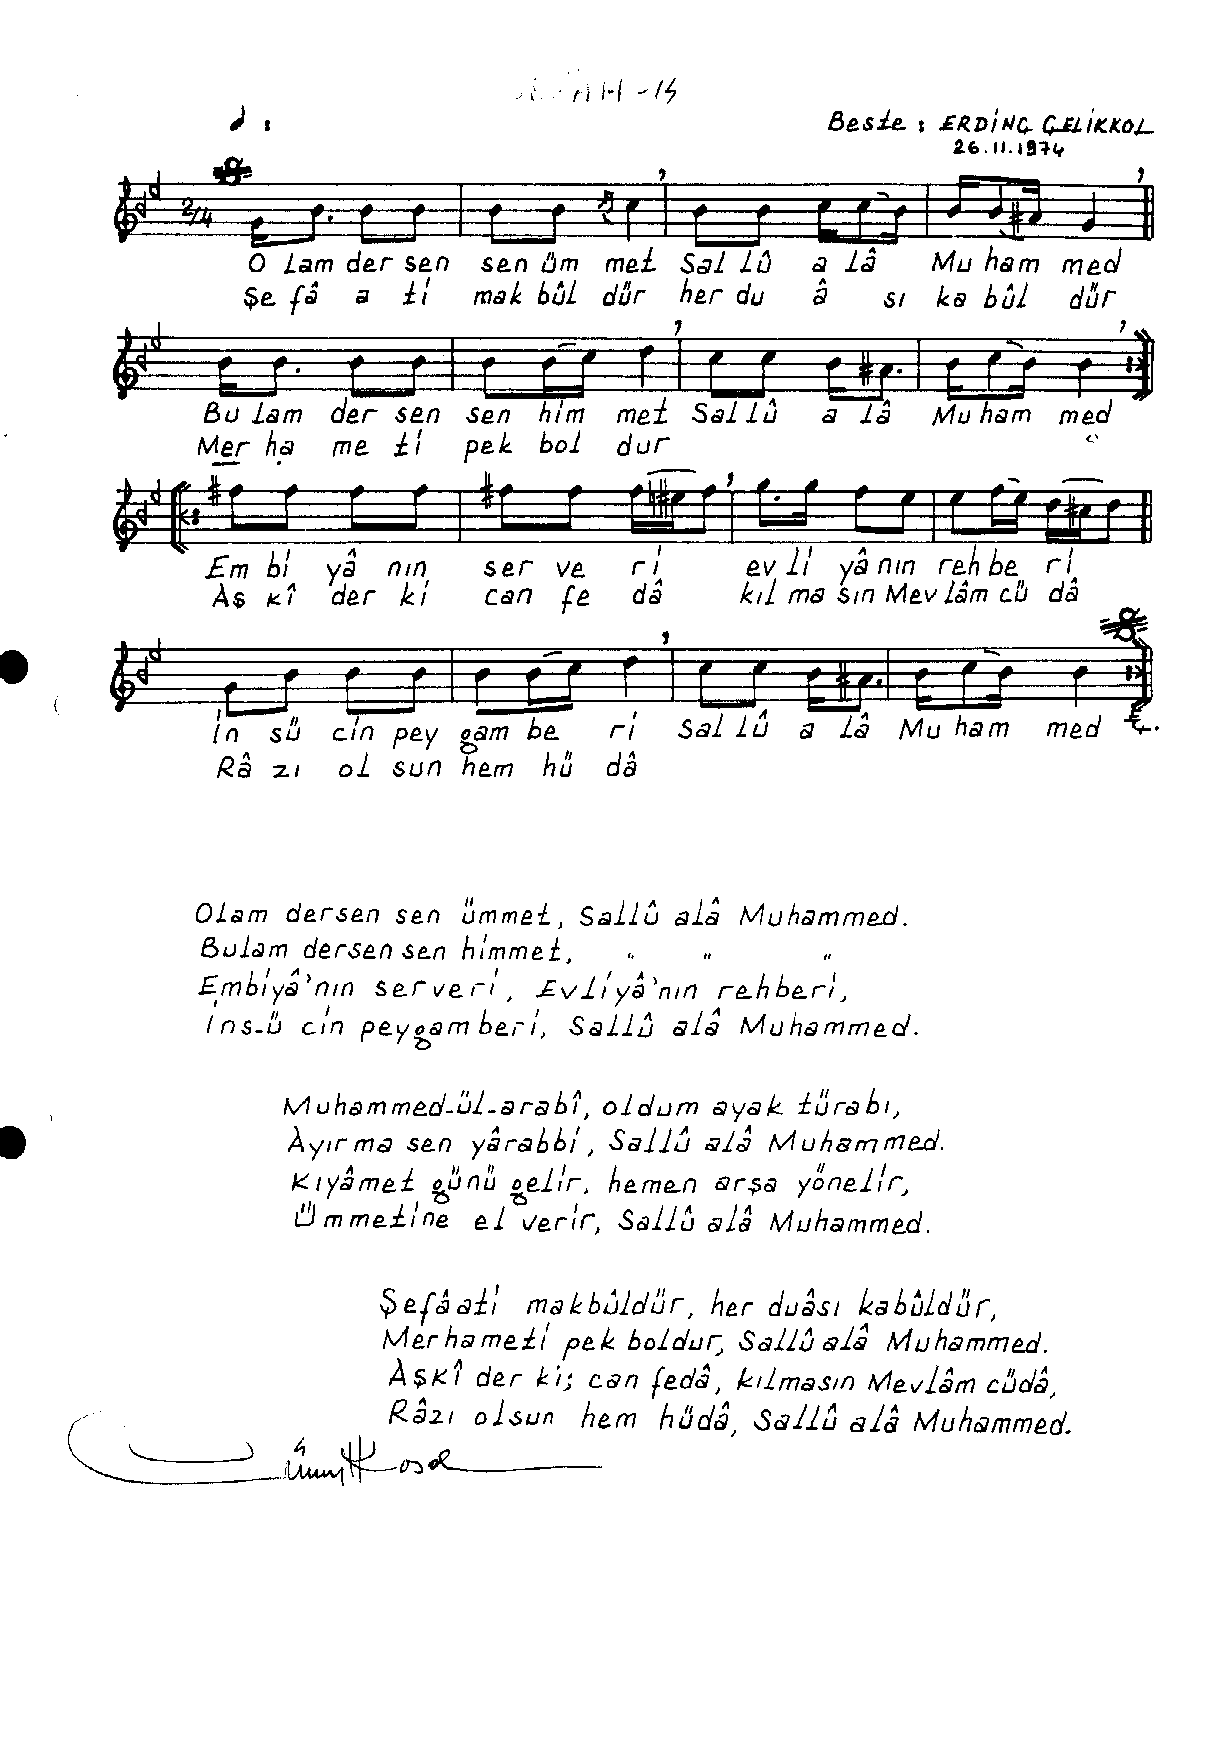 -15
Beste : ERDİNÇ ÇELİKKOL
26.11.1974
2/4
O lam der sen sen üm met Sal lû a lâ Mu ham med
Şe fâ a ti mak bûl dür her du â sı ka bûl dür
Bu lam der sen sen him met Sal lû a lâ Mu ham med
Mer ha me ti pek bol dur
Em bi yâ nın ser ve ri ev li yâ nın reh be ri
Aş kî der ki can fe dâ kıl ma sın Mev lâm cü dâ
İn sü cin pey gam be ri Sal lû a lâ Mu ham med
Râ zı ol sun hem hü dâ
Olam dersen sen ümmet, Sallû alâ Muhammed.
Bulam dersen sen himmet, " " "
Embiyâ'nın serveri, Evliyâ'nın rehberi,
İns-ü cin peygamberi, Sallû alâ Muhammed.
Muhammed-ül-arabî, oldum ayak türabı,
Ayırma sen yârabbi, Sallû alâ Muhammed.
Kıyâmet günü gelir, hemen arşa yönelir,
Ümmetine el verir, Sallû alâ Muhammed.
Şefâati makbûldür, her duâsı kabûldür,
Merhameti pek boldur, Sallû alâ Muhammed.
Aşkî der ki; can fedâ, kılmasın Mevlâm cüdâ,
Râzı olsun hem hüdâ, Sallû alâ Muhammed.